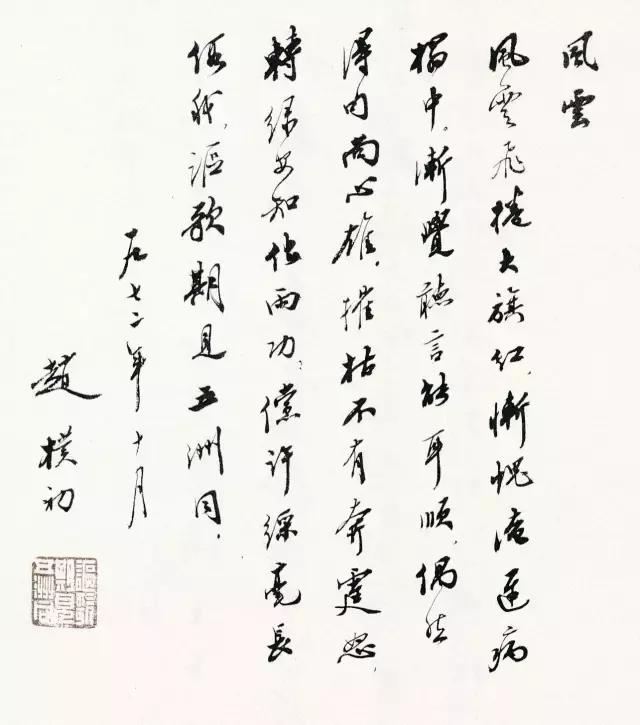 風雲
風雲飛捲大旗紅，慚愧淹遲病
榻中。漸覺聽言能耳順，偶然
得句尚心雄。摧枯不有奔霆怒，
轉綠安知化雨功。儻許綵毫長
假我，謳歌期見五洲同。
一九七二年十月
趙樸初